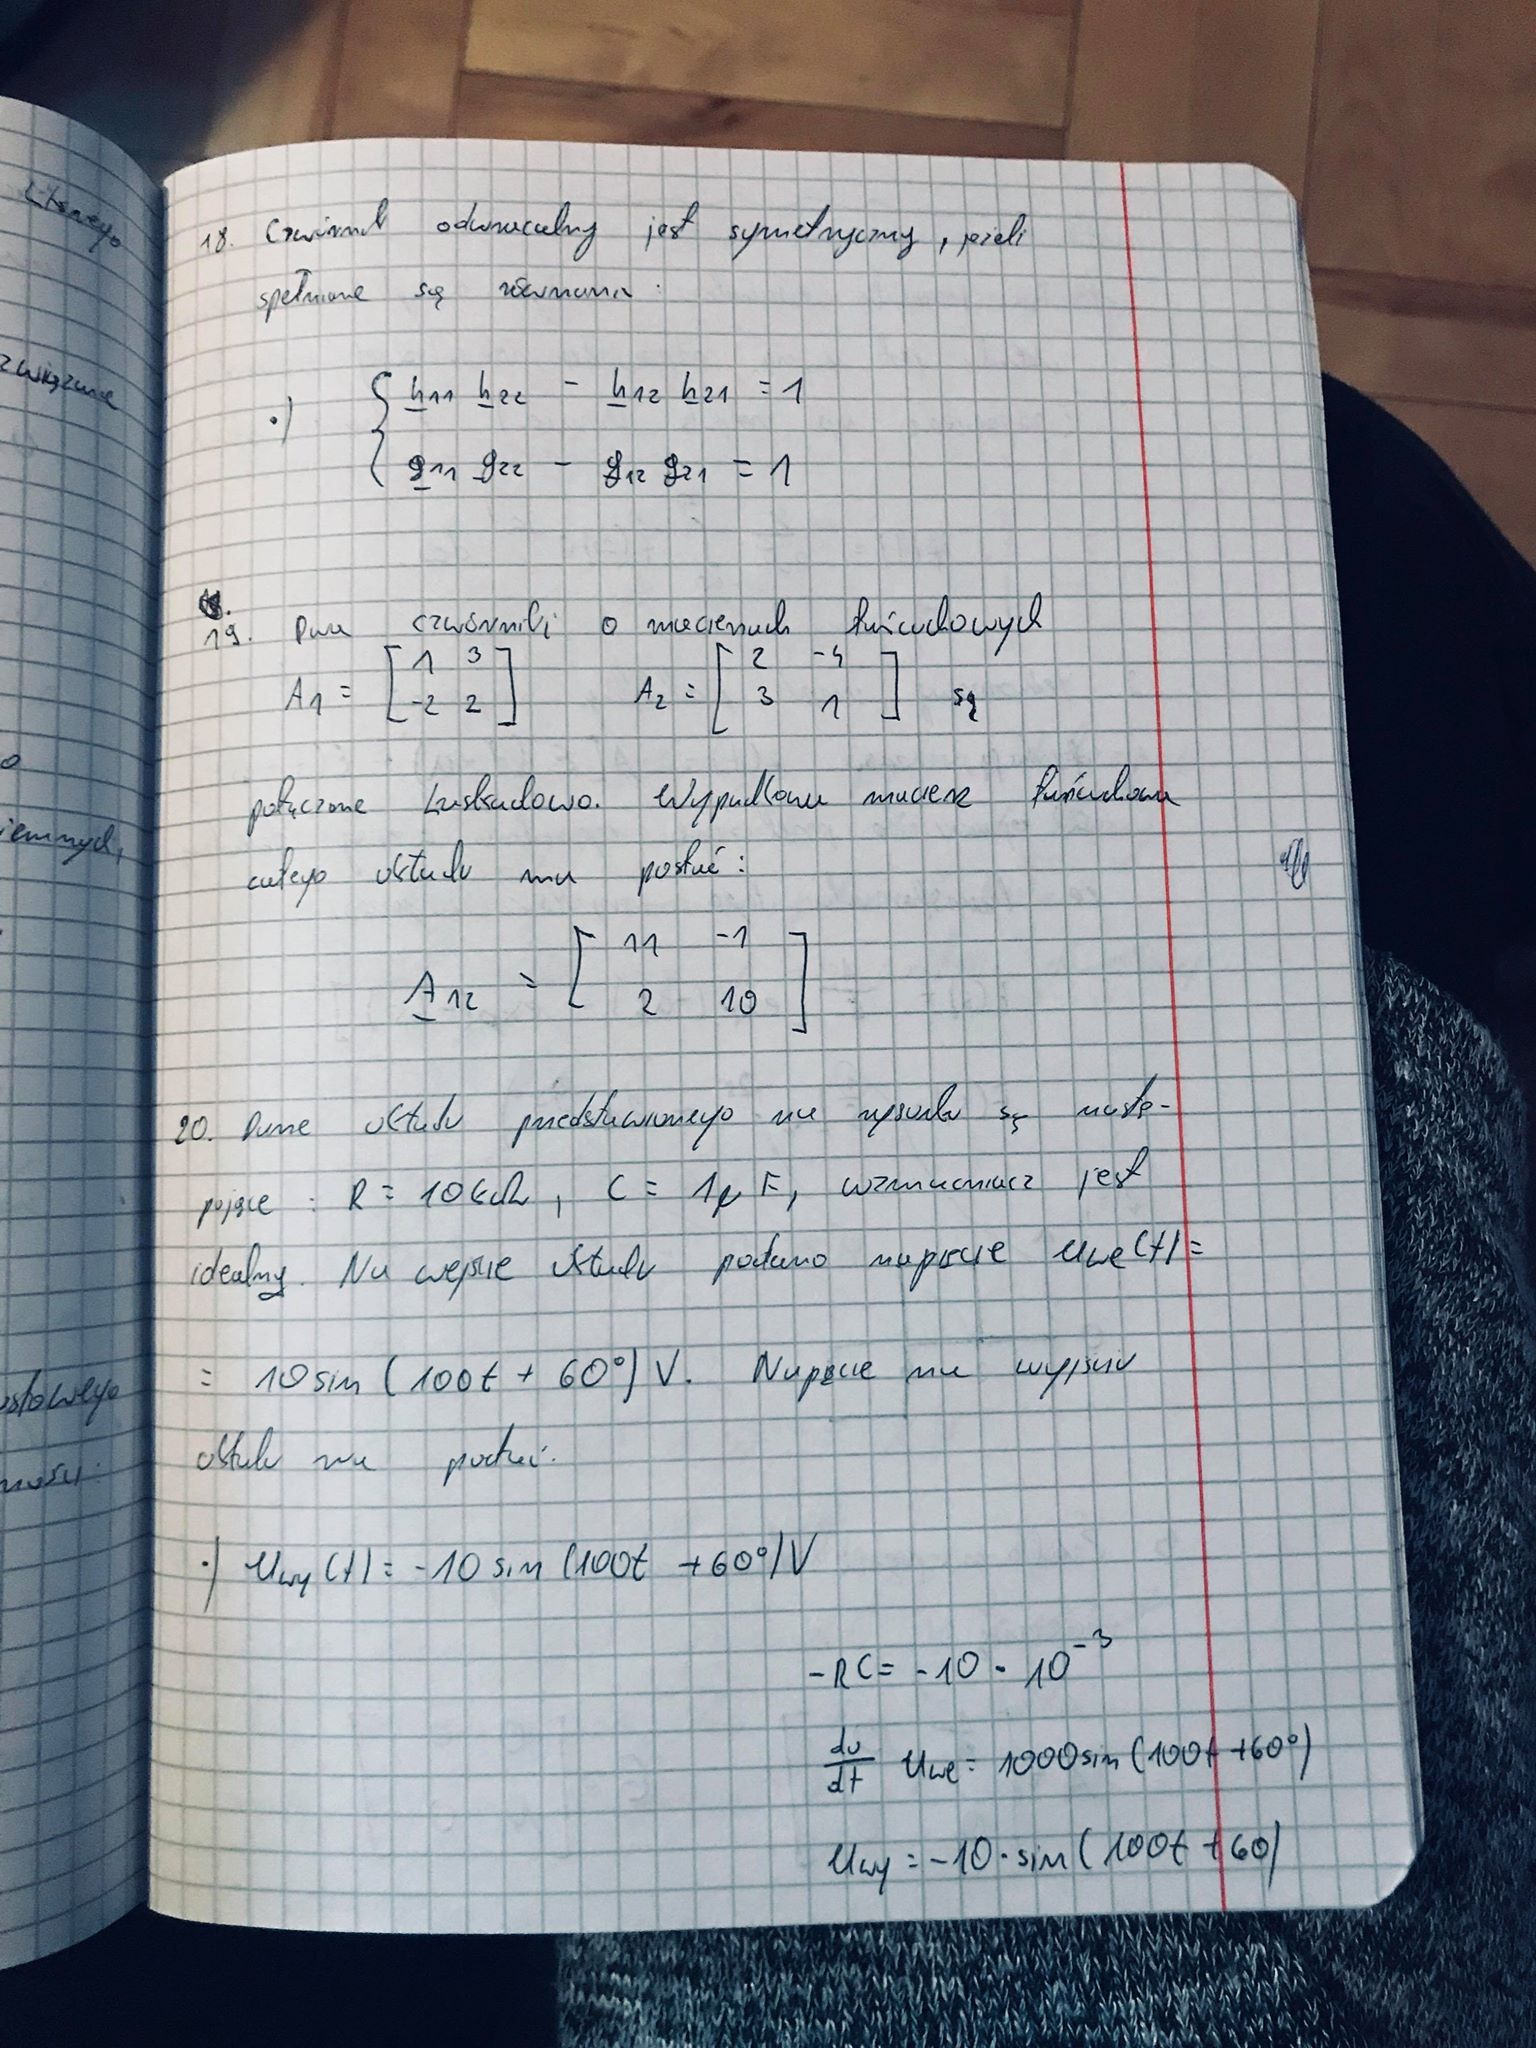 18. Czwórnik odwracalny jest symetryczny, jeżeli
spełnione są równania:
•) { h11 h22 - h12 h21 = 1
g11 g22 - g12 g21 = 1
19. Dwa czwórniki o macierzach łańcuchowych
A1 = [ 1 3 ; -2 2 ] A2 = [ 2 -4 ; 3 1 ] są
połączone kaskadowo. Wypadkowa macierz łańcuchowa
całego układu ma postać:
A12 = [ 11 -1 ; 2 10 ]
20. Dane układu przedstawionego na rysunku są nastę-
pujące: R = 10kΩ, C = 1μF, wzmacniacz jest
idealny. Na wejście układu podano napięcie uwe(t) =
= 10 sin (100t + 60°) V. Napięcie na wyjściu
układu ma postać:
•) uwy(t) = -10 sin (100t +60°) V
-RC = -10 · 10^-3
du/dt uwe = 1000 sin (100t +60°)
uwy = -10 · sin (100t +60)
ziemnych,